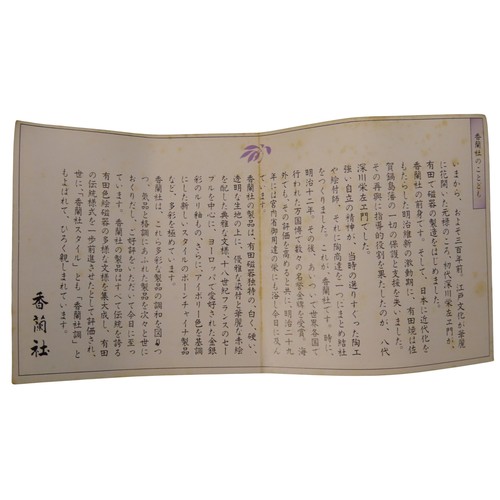 香蘭社のことども
いまから、およそ三百年前、江戸文化が華麗
に花開いた元禄のころ、初代深川栄左ヱ門が、
有田で磁器の製造をはじめました。これが、
香蘭社の前身です。そして、日本に近代化を
もたらした明治維新の激動期に、有田焼は佐
賀鍋島藩の一切の保護と支援を失いました。
その再興に指導的役割を果たしたのが、八代
深川栄左ヱ門でした。
強い自立の精神が、当時の選りすぐった陶工
や絵付師、それに陶商達を一つにまとめ結社
をつくりました。これが、香蘭社です。時に、
明治十二年。その後、あいついで世界各国で
行われた万国博で数々の名誉金牌を受賞、海
外でも、その評価を高めると共に、明治二十九
年には宮内省御用達の栄にも浴し今日に及ん
でいます。
香蘭社の製品は、有田磁器独特の、白く、硬い、
透明な生地の上に、優雅な染付と華麗な赤絵
を配した典雅な文様、十八世紀フランスのセー
ブルをはじめ、ヨーロッパで愛好された金銀
彩のルリ釉もの、さらにアイボリー色を基調
にした新しいスタイルのボーンチャイナ製品
など、多彩を極めています。
香蘭社は、これら多彩な製品の調和を図りつ
つ、気品と格調にあふれた製品を次々と世に
おくりだし、ご好評をいただいて今日に至っ
ています。香蘭社の製品はすべて伝統を誇る
有田色絵磁器の多様な文様を集大成し、有田
の伝統様式を一歩前進させたとして評価され、
世に「香蘭社スタイル」とも「香蘭社調」と
もよばれて、ひろく親しまれています。
香蘭社